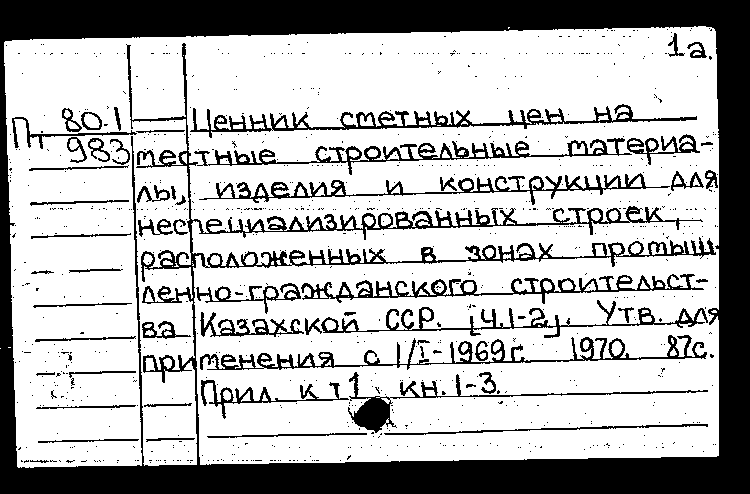 1а.
Пт 80.1 Ценник сметных цен на
983 местные строительные материа-
лы, изделия и конструкции для
неспециализированных строек,
расположенных в зонах промыш-
ленно-гражданского строительст-
ва Казахской ССР. [Ч.1-2]. Утв. для
применения с 1/I-1969г. 1970. 87с.
Прил. к т1, кн.1-3.